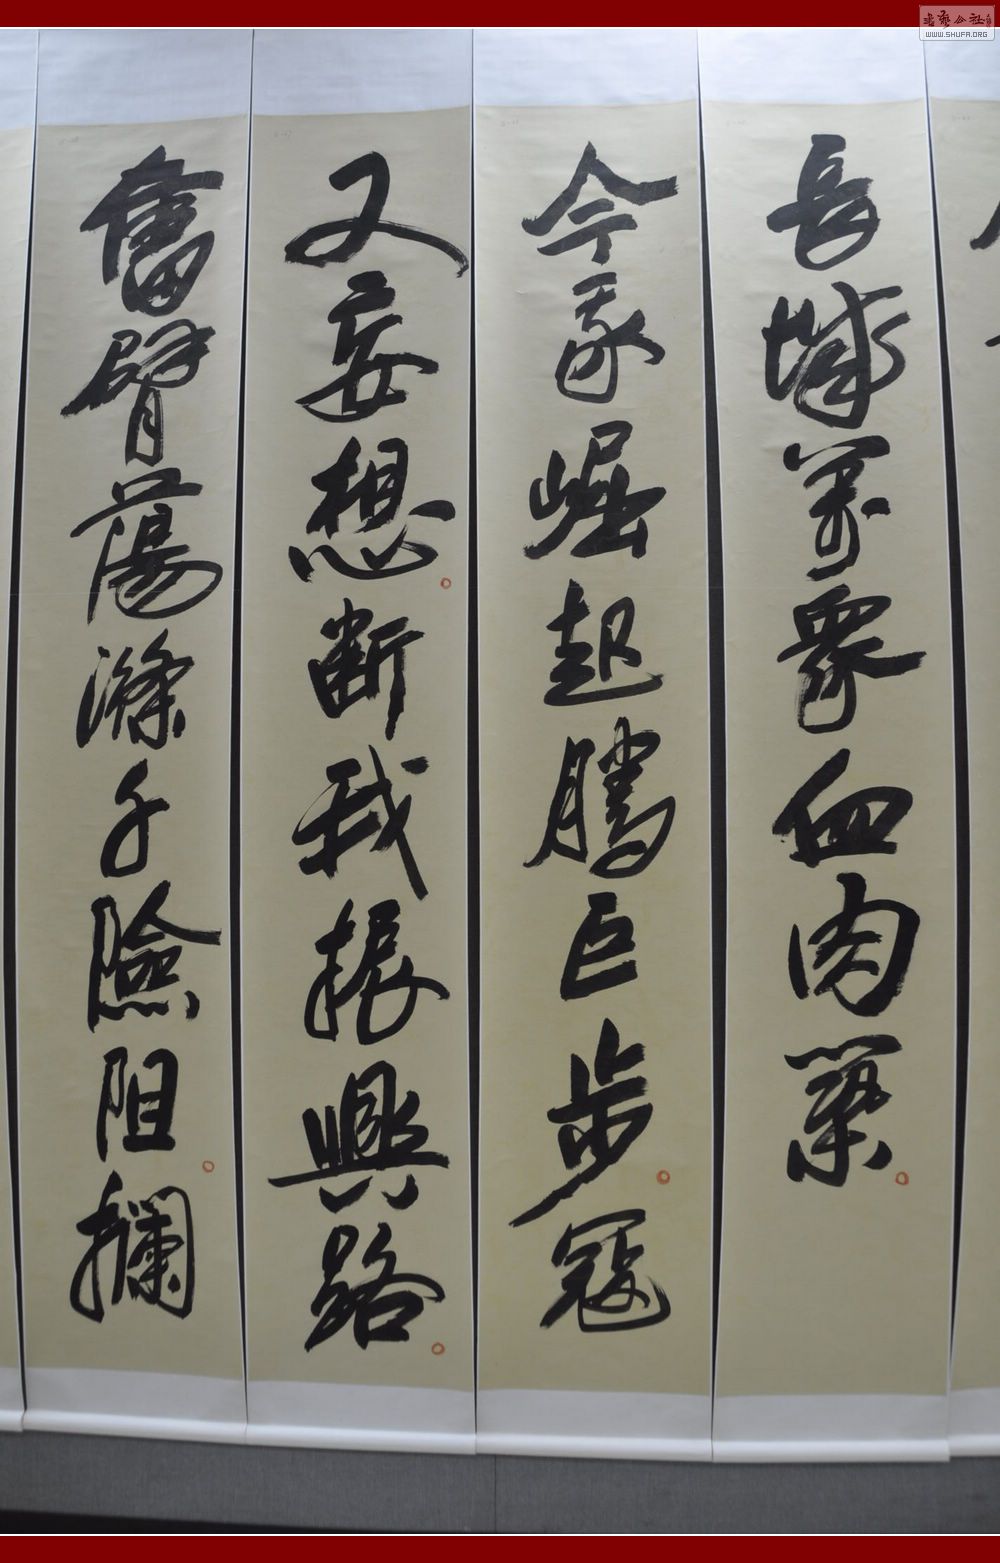 長城萬眾血肉築
今我崛起騰巨步寇
又妄想斷我振興路
奮臂蕩滌千險阻攔
WWW.SHUFA.ORG